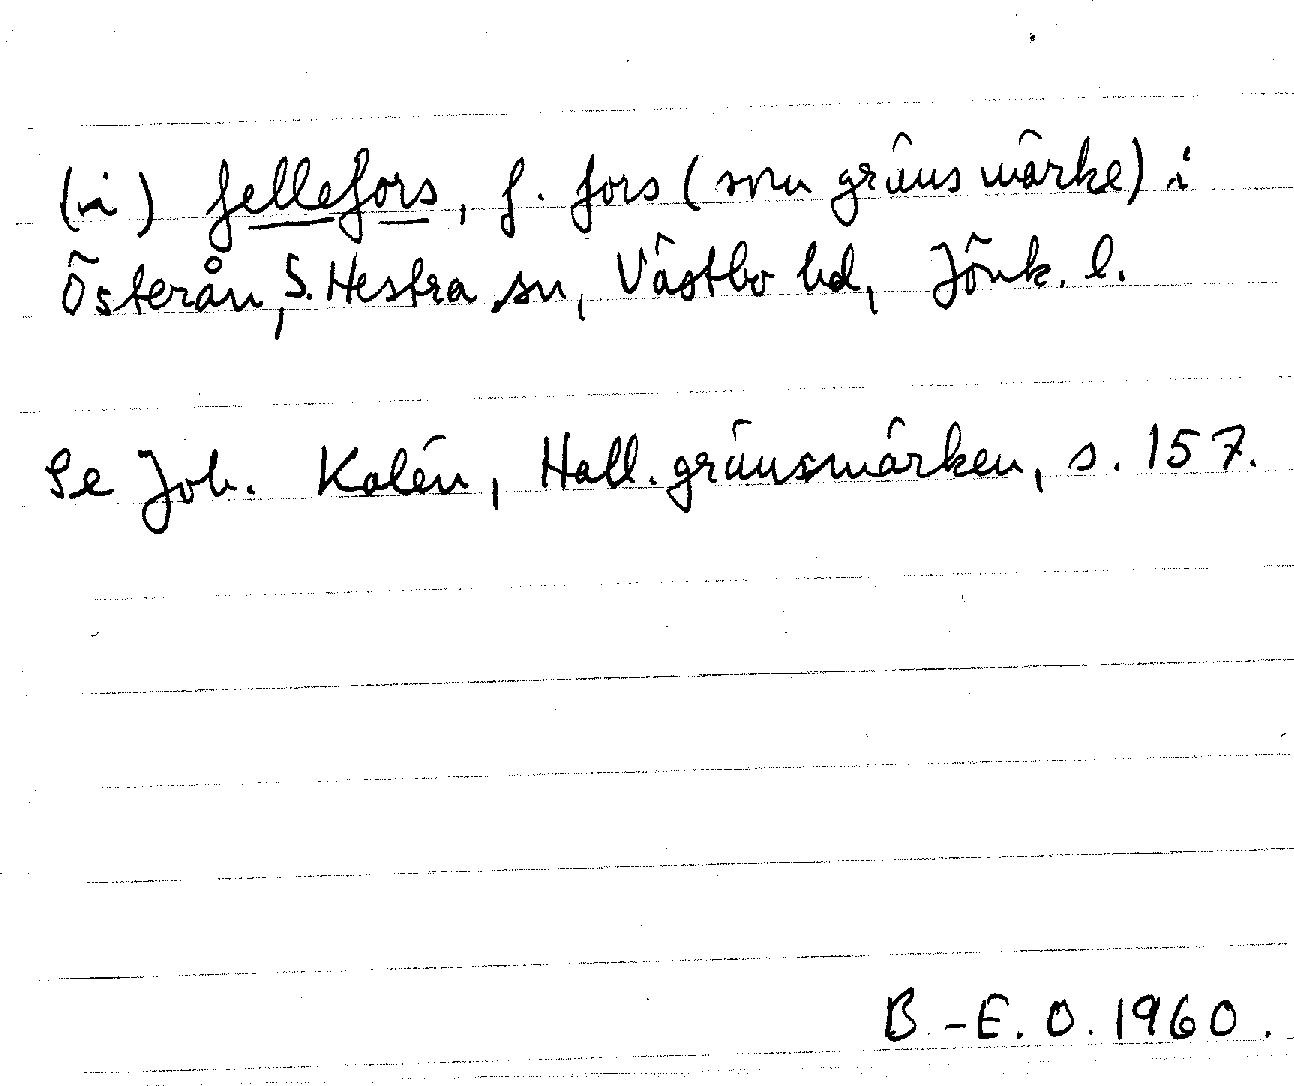 (i) fellefors, f. fors (som gränsmärke) i
Österån, S. Hestra sn, Västbo hd, Jönk. l.
Se Joh. Kalén, Hall. gränsmärken, s. 157.
B.-E. O. 1960.